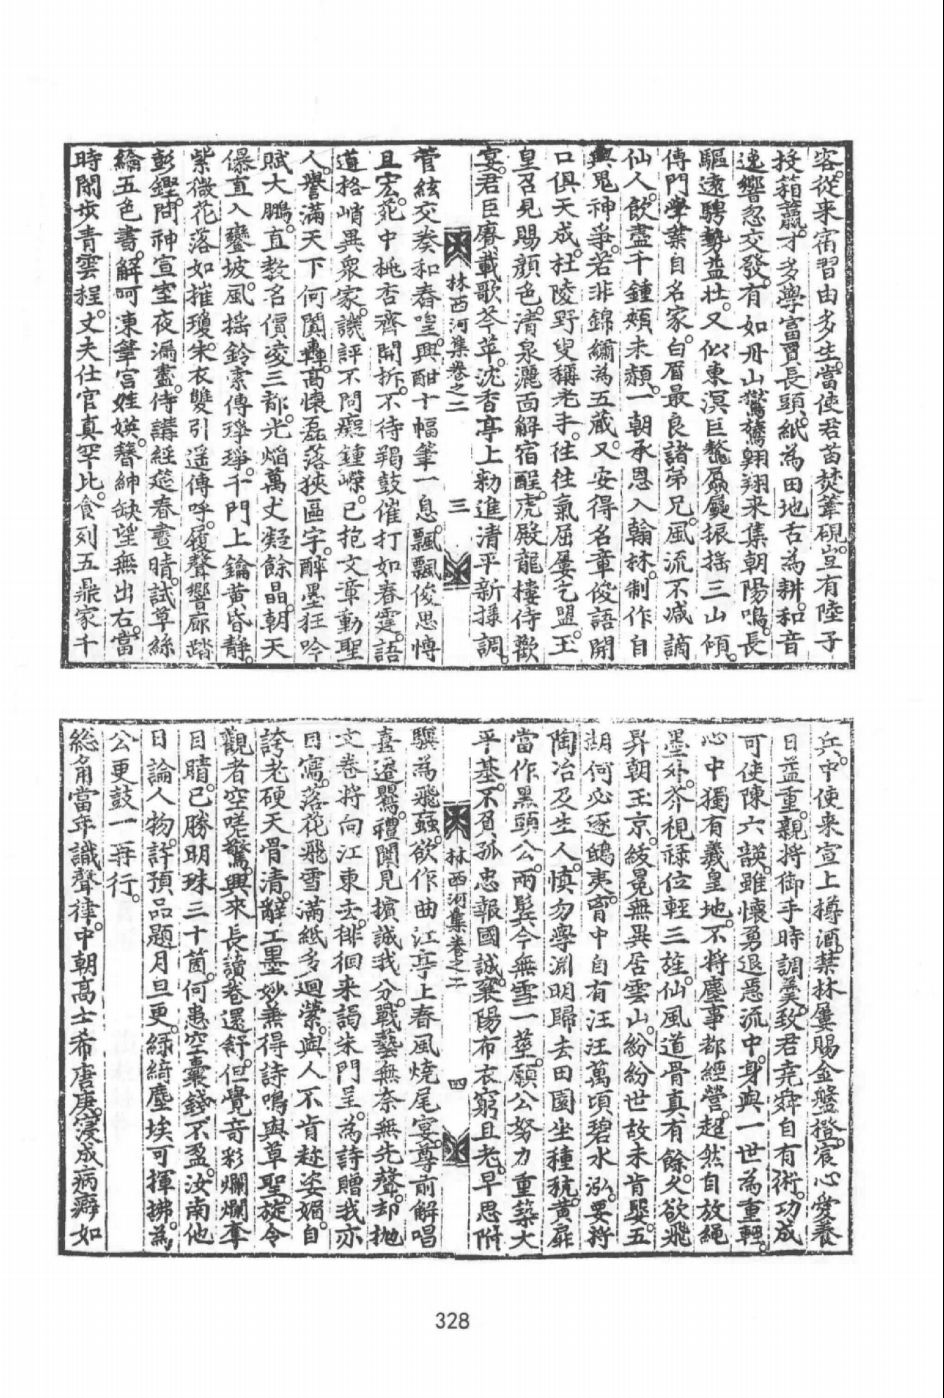 客從來宿習由多生當使君苗焚筆硯豈有陸子
投箱籝才多學富賈長頭紙為田地舌為耕和音
逸響忽交發有如丹山鸑鷟翱翔來集朝陽鳴長
驅遠騁勢益壯又似東溟巨鰲贔屭振搖三山傾
傳門學業自名家白眉最良諸弟兄風流不減謫
仙人飲盡千鍾頰未赬一朝承恩入翰林制作自
與鬼神爭若非錦繡為五藏又安得名章俊語開
口俱天成杜陵野叟稱老手往往氣屈屢乞盟玉
皇召見賜顏色清泉灑面解宿酲虎殿龍樓侍歡
宴君臣賡載歌苓苹沈香亭上勑進清平新㨾調
林西河集卷之二
三
管絃交奏和春嗈興酣十幅筆一息飄飄俊思愽
且宏苑中桃杏齊開拆不待羯鼓催打如春霆語
道格峭異衆家譏評不問癡鍾嶸已抱文章動聖
人譽滿天下何闐轟高懷磊落狹區宇醉墨狂吟
賦大鵬直敎名價凌三都光焰萬丈凝餘晶朝天
儤直入鑾坡風搖鈴索傳琤琤千門上鑰黃昏靜
紫微花落如摧瓊朱衣雙引遥傳呼履聲響廊踏
彭鏗問神宣室夜漏盡侍講經筵春晝晴試草絲
綸五色書解呵凍筆宮娃媖簪紳缺望無出右當
時閑步青雲程丈夫仕宦真罕比食列五鼎家千
兵中使來宣上樽酒禁林屢賜金盤橙宸心愛養
日益重親將御手時調羹致君堯舜自有術功成
可使陳六韺雖懷勇退急流中身與一世為重輕
心中獨有羲皇地不將塵事都經營超然自放繩
墨外芥視祿位輕三旌仙風道骨真有餘久欲飛
昇朝玉京紱冕無異居雲山紛紛世故未肯嬰五
湖何必逐鴟夷胷中自有汪汪萬頃碧水泓要將
陶冶及生人愼勿學淵明歸去田園坐種秔黃扉
當作黑頭公兩鬂今無雪一莖願公努力重築大
平基不負孤忠報國誠襄陽布衣窮且老早思附
林西河集卷之二
四
驥為飛蝱欲作曲江亭上春風燒尾宴尊前解唱
喜遷鸎禮闈見擯誠我分戰藝無奈無先聲却抛
文卷將向江東去徘徊來謁朱門呈為詩贈我亦
目寫落花飛雪滿紙多迴縈與人不肯趂姿媚自
誇老硬天骨清辭工墨妙兼得詩鳴與草聖旋令
觀者空嗟驚興來長讀卷還舒但覺奇彩爛爛奪
目睛已勝明珠三十箇何患空囊錢不盈汝南他
日論人物許預品題月旦更綠綺塵埃可揮拂為
公更鼓一再行
総角當年識聲律中朝高士希唐庚寖成病癖如